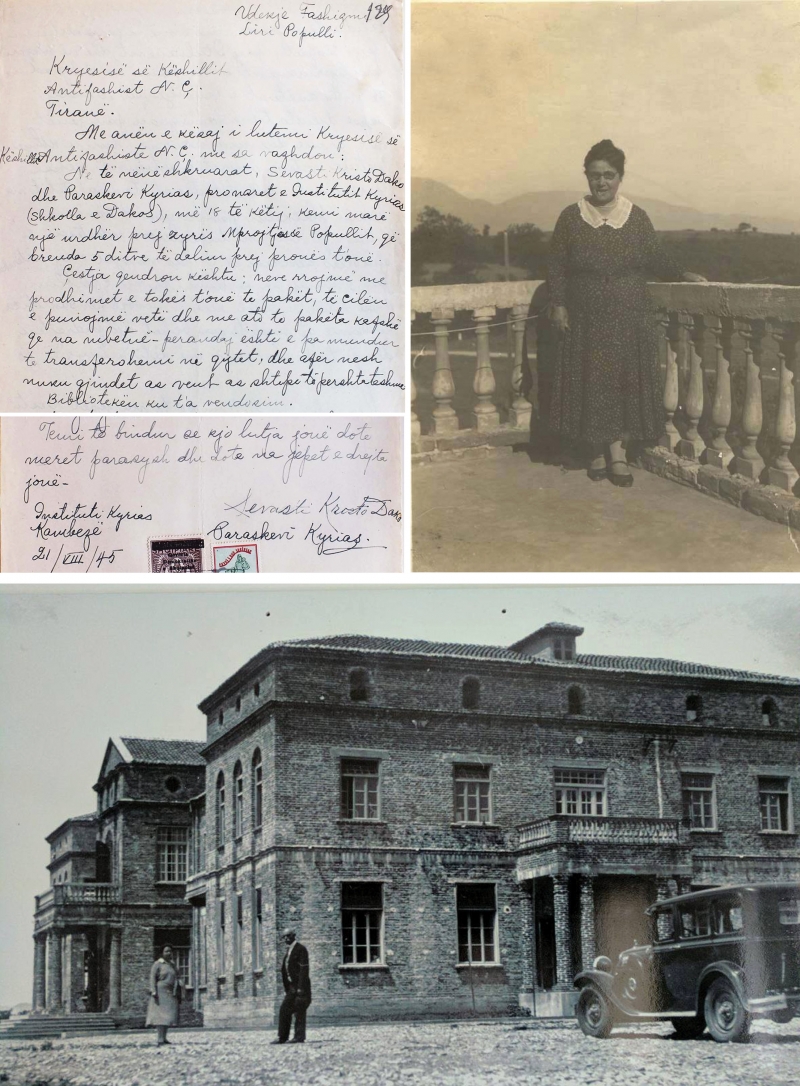 Vdekje Fashizmit
Liri Populli.
Kryesisë së Këshillit
Antifashist N. Ç.
Tiranë.
Me anën e kësaj i lutemi Kryesisë së
Këshillit Antifashiste N. Ç. me sa vaghdon:
Ne të nënëshkruarat, Sevasti Kristo Dako
dhe Paraskevi Kyrias, pronaret e Institutit Kyrias
(Shkolla e Dakos), më 18 të këtij, kemi marë
një urdhër prej zyris Mprojtjesë Popullit, që
brenda 5 ditve të dalim prej pronës t'onë.
Çestja qendron kështu; neve rrojmë me
prodhimet e tokës t'onë të pakët, të cilën
e punojmë vetë dhe me ato të paketa kafshë
qe na mbetnë - perandaj është e pa mundur
te transferohemi në qytet, dhe afër nesh
nuku gjindet as vent as shtëpi të përshtatshme
Bibliotekën ku t'a vendosim.
Temi të bindur se kjo lutja jonë dote
meret parasysh dhe dote na jepet e drejta
jonë-
Instituti Kyrias
Kambezë
21/VIII/45
Sevasti Kristo Dako
Paraskevi Kyrias.